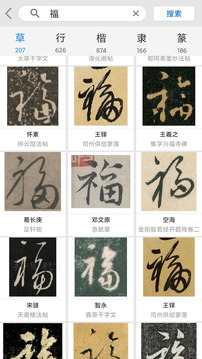 福
搜索
草 行 楷 隶 篆
207 626 874 166 186
大草千字文 淳化阁帖 郁冈斋墨妙法帖
福 福 福
怀素 王铎 王羲之
停云馆法帖 司州供给部落 集字兴福寺碑
福 福 福
葛长庚 邓文原 空海
足轩铭 急就章 金刚般若经开题残卷二
福 福 福
宋璲 智永 王铎
天香楼法帖 真草千字文 司州供给部落